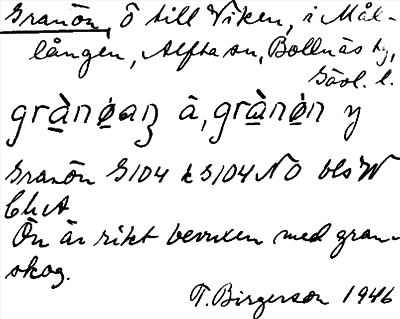 Granön, ö till Viken, i Mål-
lången, Alfta sn, Bollnäs tg,
Gävl. l.
grànøaɳ ä, grànøn y
Granön G104 k G104 NO bl
Ch A
Ön är rikt bevuxen med gran-
skog.
T. Birgerson 1946